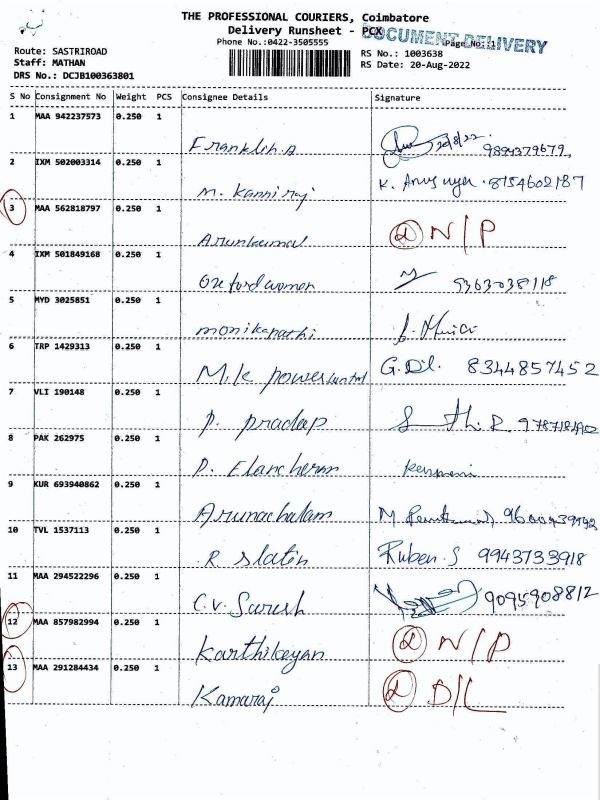 THE PROFESSIONAL COURIERS, Coimbatore
Delivery Runsheet - PCX
DOCUMENT DELIVERY
Phone No.:0422-3505555
Page No.:1
Route: SASTRIROAD
Staff: MATHAN
DRS No.: DCJB100363801
RS No.: 1003638
RS Date: 20-Aug-2022
S No Consignment No Weight PCS Consignee Details Signature
1 MAA 942237573 0.250 1
Franklin.A 20/8/22 9894379679
2 IXM 502003314 0.250 1
M. Kanniraj K. Anusuya. 8754602187
3 MAA 562818797 0.250 1
Arunkumar N/P
4 IXM 501849168 0.250 1
Oxford women 9363038118
5 MYD 3025851 0.250 1
monikaparthi
6 TRP 1429313 0.250 1
M.K power control G.Dil. 8344857452
7 VLI 190148 0.250 1
P. pradeep
8 PAK 262975 0.250 1
P. Elancheran
9 KUR 693940862 0.250 1
Arunachalam
10 TVL 1537113 0.250 1
R statin Ruben.S 9943733918
11 MAA 294522296 0.250 1
C.V. Suresh 9095908812
12 MAA 857982994 0.250 1
Karthikeyan N/P
13 MAA 291284434 0.250 1
Kamaraj D/L